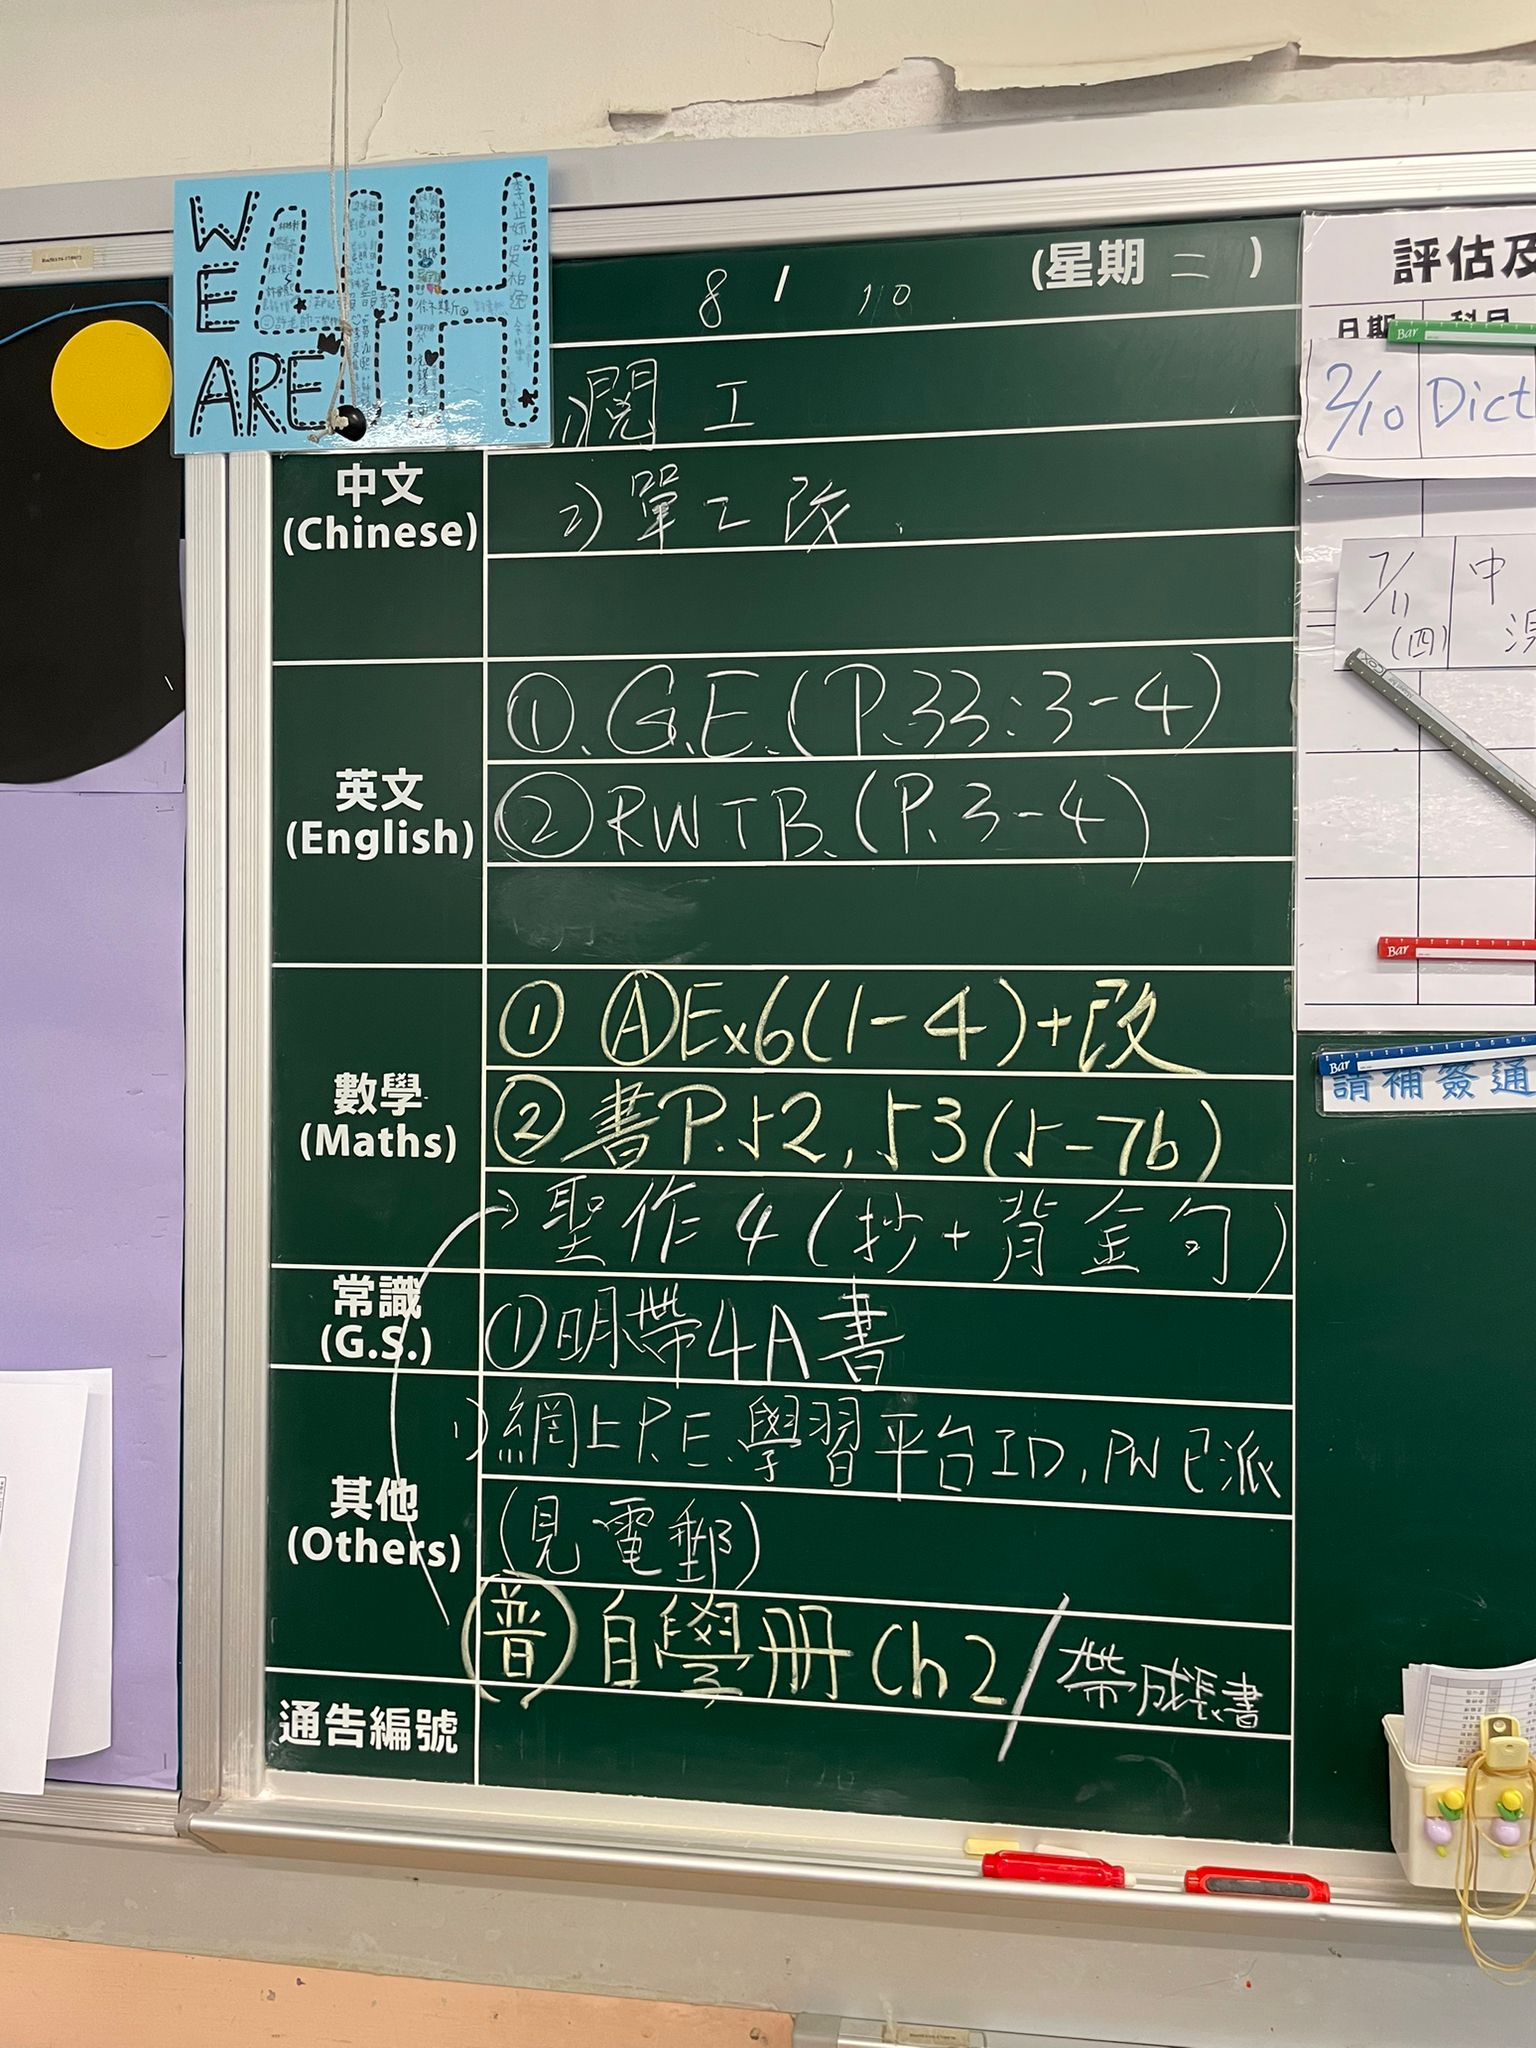 WE ARE 4H
8 / 10 (星期 二 )
1) 閱 工
中文
(Chinese)
2) 單 工 改
英文
(English)
①. G.E. (P.33:3-4)
② RWTB. (P.3-4)
數學
(Maths)
① Ⓐ Ex6(1-4)+改
② 書P.52, 53(5-7b)
→ 聖作 4 (抄 + 背金句)
常識
(G.S.)
① 明帶4A書
其他
(Others)
1) 網上P.E.學習平台ID, PW已派
(見電郵)
普 自學冊 Ch2 / 帶成長書
通告編號
評估及
日期 科目
2/10 Dict
7/11 (四) 中
請補簽通
Bar
Bar
Bar